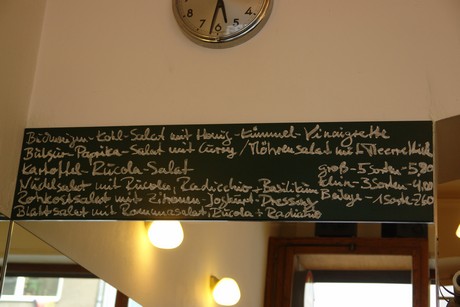 8 7 6 5 4
Buchweizen-Kohl-Salat mit Honig-Kümmel-Vinaigrette
Bulgur-Paprika-Salat mit Curry / Möhrensalat mit Meerrettich
Kartoffel-Rucola-Salat groß-5 Sorten-5,80
Nudelsalat mit Rucola, Radicchio + Basilikum klein-3 Sorten-4,00
Rohkostsalat mit Zitronen-Joghurt-Dressing Beilage-1 Sorte-2,60
Blattsalat mit Romanasalat, Rucola + Radicchio